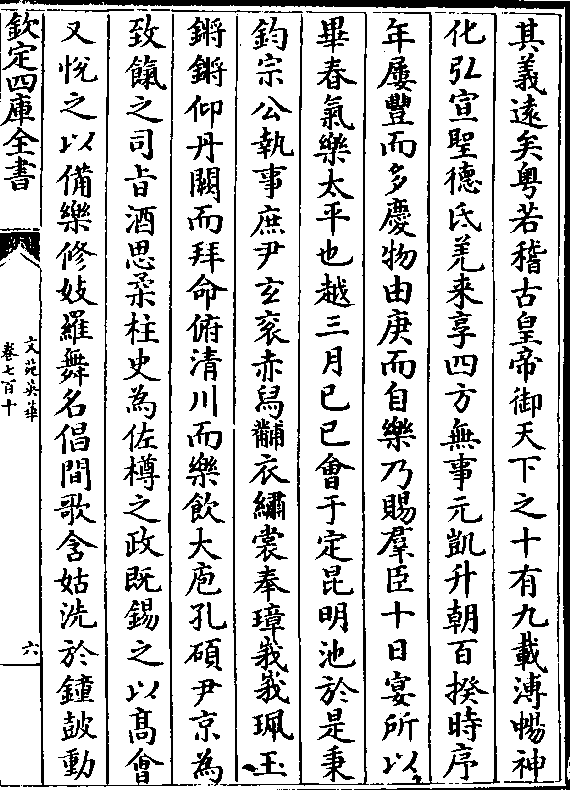 其義遠矣粤若稽古皇帝御天下之十有九載溥暢神
化弘宣聖德氐羌来享四方無事元凱升朝百揆時序
年屢豐而多慶物由庚而自樂乃賜羣臣十日宴所以
畢春氣樂太平也越三月已已會于定昆明池於是秉
鈞宗公執事庶尹玄衮赤舄黼衣繡裳奉璋峩峩珮玉
鏘鏘仰丹闕而拜命俯清川而樂飲大庖孔碩尹京為
致餼之司旨酒思柔柱史為佐樽之政既錫之以髙會
又悅之以備樂修妓羅舞名倡間歌含姑洗於鐘鼓動
欽定四庫全書
文苑英華
卷七百十
六